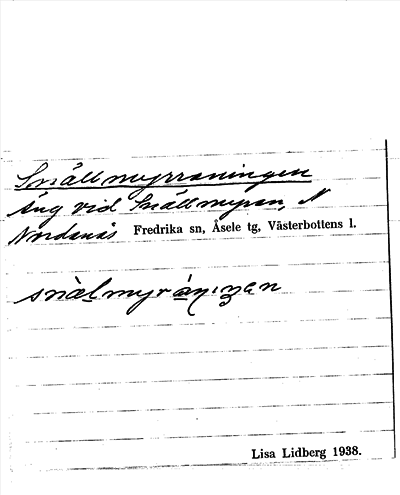 Snällmyrraningen
Äng vid Snällmyran, N
Nordanås Fredrika sn, Åsele tg, Västerbottens l.
Lisa Lidberg 1938.